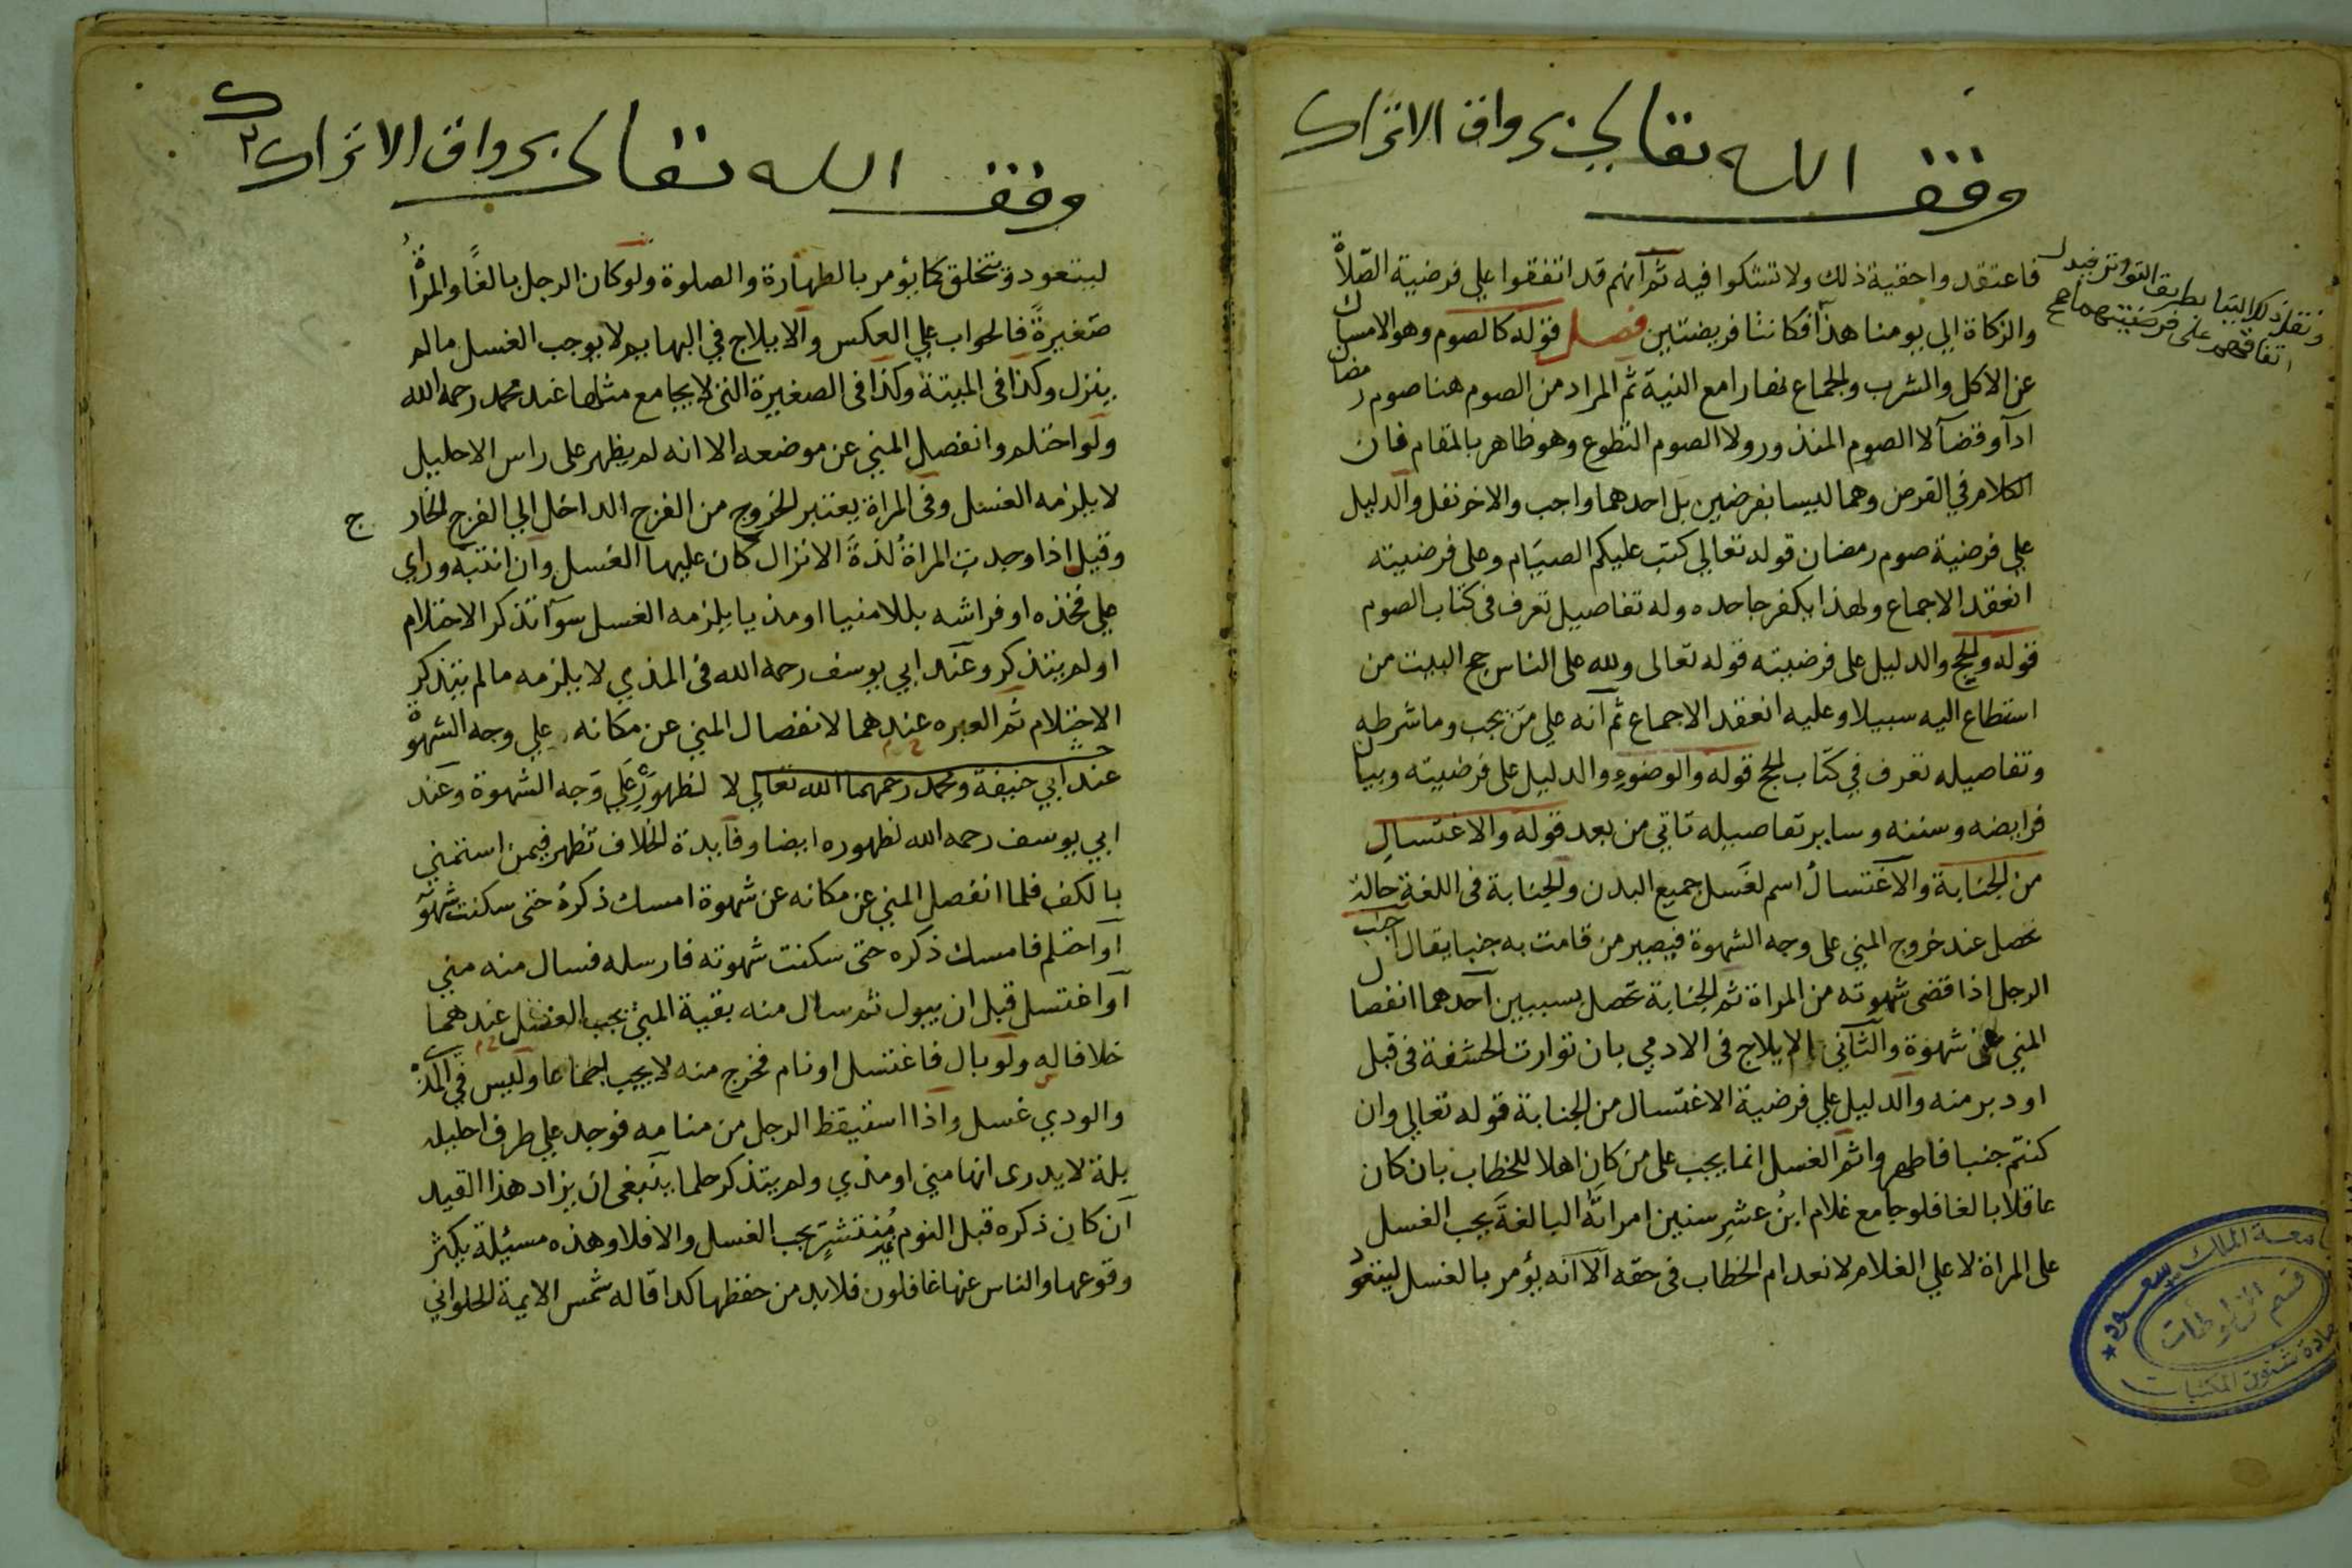 وقف الله تعالى برواق الاتراك
فاعتقدوا حقية ذلك ولا تشكوا فيه ثم انهم قد اتفقوا علي فرضية الصّلاة
والزكاة الي يومنا هذا فكانتا فريضتين فصل قوله كالصوم وهو الامساك
عن الاكل والشرب والجماع نهارا مع النية ثم المراد من الصوم هنا صوم رمضان
ادآ وقضآ لا الصوم المنذور ولا الصوم التطوع وهو ظاهر بالمقام فان
الكلام في الفرض وهما ليسا بفرضين بل احدهما واجب والاخر نفل والدليل
علي فرضية صوم رمضان قوله تعالي كتب عليكم الصيَام وعلى فرضيته
انعقد الاجماع ولهذا يكفر جاحده وله تفاصيل تعرف فى كتاب الصوم
قوله والحج والدليل على فرضيته قوله تعالى ولله على الناس حج البيت من
استطاع اليه سبيلا وعليه انعقد الاجماع ثم آنه علي مَن يجب وما شرطه
وتفاصيله تعرف في كتاب الحج قوله والوضوءِ والدليل على فرضيته وبيان
فرايضه وسننه وساير تفاصيله تاتي من بعد قوله والاغتسالِ
من الجنَابة والاغتسالُ اسم لغَسل جميع البدن والجنابة فى اللغة حالة
تحصل عند خروج المني على وجه الشهوة فيصير من قامت به جنبا يقال اجنب
الرجل اذا قضى شهوته من المراة ثم الجنابة تحصل بسببين احدهما انفصال
المني عن شهوة والثاني الايلاج فى الادمي بان توارت الحشفة فى قبل
او دبر منه والدليل علي فرضية الاغتسال من الجنابة قوله تعالي وان
كنتم جنبا فاطهروا ثم الغسل انما يجب على من كان اهلا للخطاب بان كان
عاقلا بالغا فلو جامع غلام ابنُ عشرِ سنين امراتَهُ البالغةَ يجب الغسل
على المراة لا علي الغلام لانعدام الخطاب فى حقه الا انه يؤمر بالغسل ليتعود
ونقل ذلك الينا بطريق التواتر فيدل
اتفاقهم على فرضيتهما صح
جامعة الملك سعود
قسم المخطوطات
عمادة شئون المكتبات
وقف الله تعالى برواق الاتراك
ليتعود ويتخلق كما يؤمر بالطهارة والصلوة ولو كان الرجل بالغًا والمرأةُ
صَغيرةً فالجواب علي العكس والايلاج في البهايم لا يوجب الغسل مالم
ينزل وكذا فى الميتة وكذا فى الصغيرة التى لا يجامع مثلها عند محمد رحمه الله
ولو احتلم وانفصل المني عن موضعه الا انه لم يظهر على راس الاحليل
لا يلزمه الغسل وفى المراة يعتبر الخروج من الفرج الداخل الي الفرج الخارج
وقيل اذا وجدت المراةُ لذةَ الانزال كان عليها الغسل وان انتبه وراي
علي فخذه او فراشه بللا منيا او مذيا يلزمه الغسل سوآ تذكر الاحتلام
او لم يتذكر وعند ابي يوسف رحمه الله فى المذي لا يلزمه مالم يتذكر
الاحتلام ثم العبره عندهما لانفصال المني عن مكانه علي وجه الشهوة
عند ابي حنيفة ومحمد رحمهما الله تعالي لا لظهوره عَلي وَجه الشهوة وعند
ابي يوسف رحمه الله لظهوره ايضا وفايدة الخلاف تظهر فيمن استمني
بالكف فلما انفصل المني عن مكانه عن شهوة امسك ذكرهُ حتى سكنت شهوته
آو احتلم فامسك ذكره حتى سكنت شهوته فارسله فسال منه مني
آو اغتسل قبل ان يبول ثم سال منه بقية المني يجب الغسل عندهما
خلافا له ولو بال فاغتسل او نام فخرج منه لا يجب اجماعا وليس في المذي
والودي غسل واذا استيقظ الرجل من منامه فوجد علي طرف احليله
بلة لا يدرى انها مني او مذي ولم يتذكر حلما ينبغى ان يزاد هذا القيد
آن كان ذكره قبل النوم غير مُنتشرٍ يجب الغسل والا فلا وهذه مسئلة يكثر
وقوعها والناس عنها غافلون فلا بد من حفظها كدا قاله شمس الايمة الحلواني